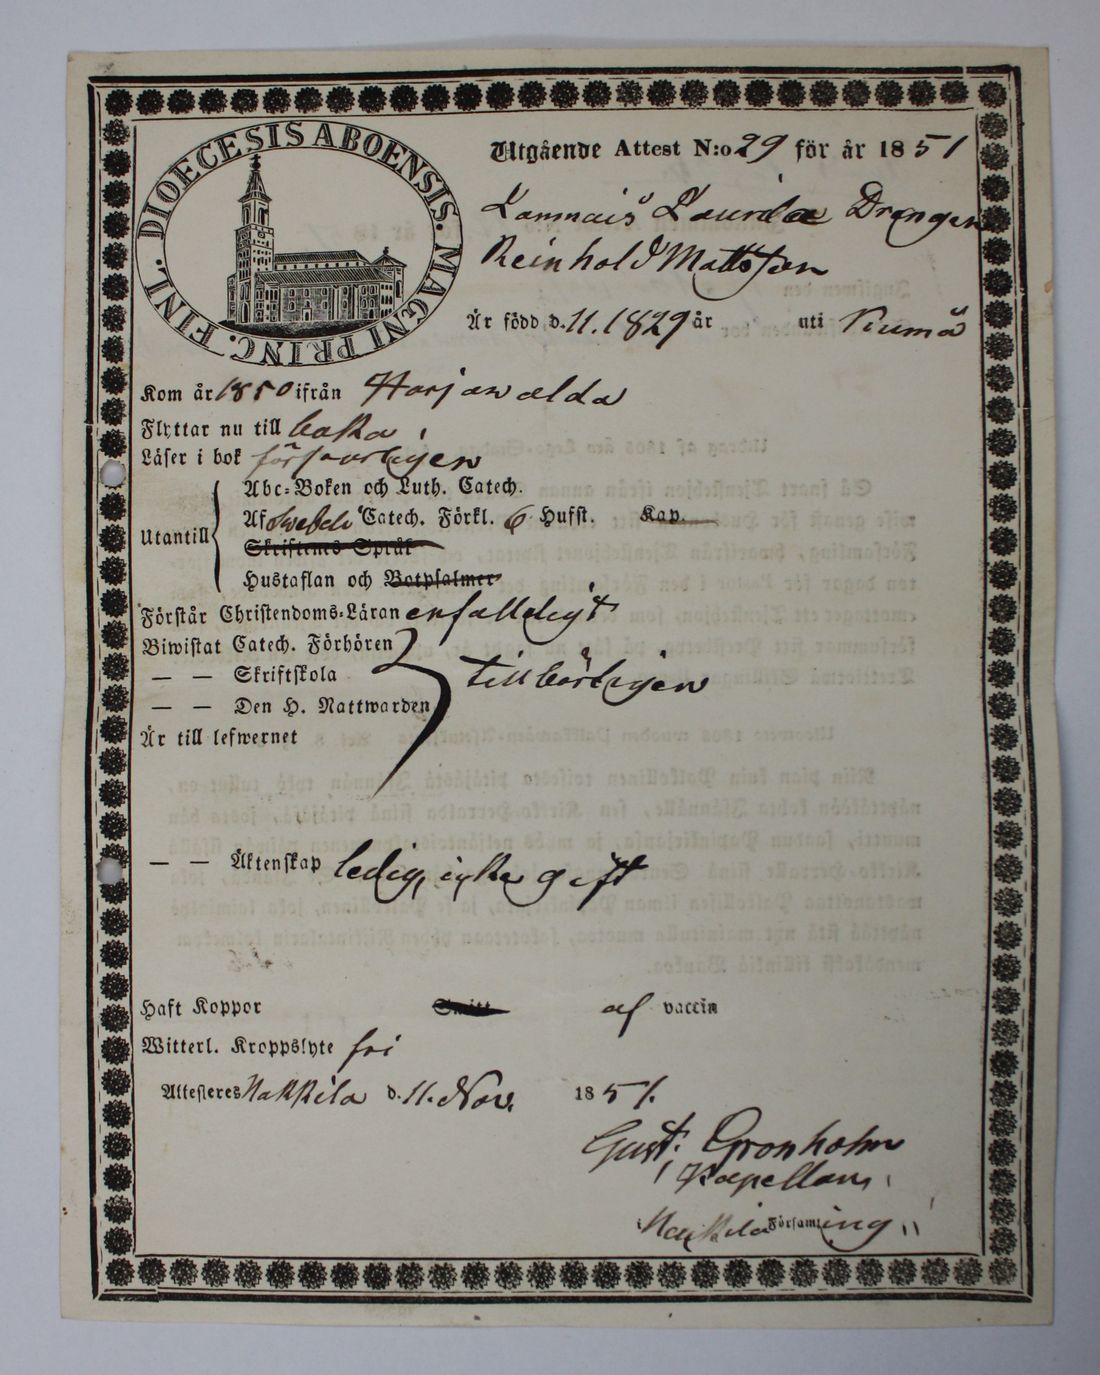 DIOECESIS ABOENSIS. MAGNI PRINC. FINL.
Utgående Attest N:o 29 för år 1851
Lammais Laurila Drengen
Reinhold Mattsson
Är född d. 11. 1829 år uti Kiumä
Kom år 1850 ifrån Harjawalda
Flyttar nu till baka
Läser i bok försvarligen
Abc-Boken och Luth. Catech.
Utantill
Af Swebeli Catech. Förkl. 6 Husst. Kap.
Skriftenes Språk
Hustaflan och Botpsalmer
Förstår Christendoms-Läran enfalldigt
Biwistat Catech. Förhören
— — Skriftskola tillbörligen
— — Den H. Nattwarden
Är till lefwernet
— — Äktenskap ledig, icke gift
Haft Koppor Smitt af vaccin
Witterl. Kroppslyte fri
Attesteres Nakkila d. 11. Nov. 1851.
Gust. Gronholm
Kapellan,
Nakkila Församling